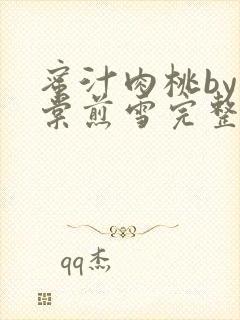 蜜汁肉桃by
棠煎雪完整
qq杰